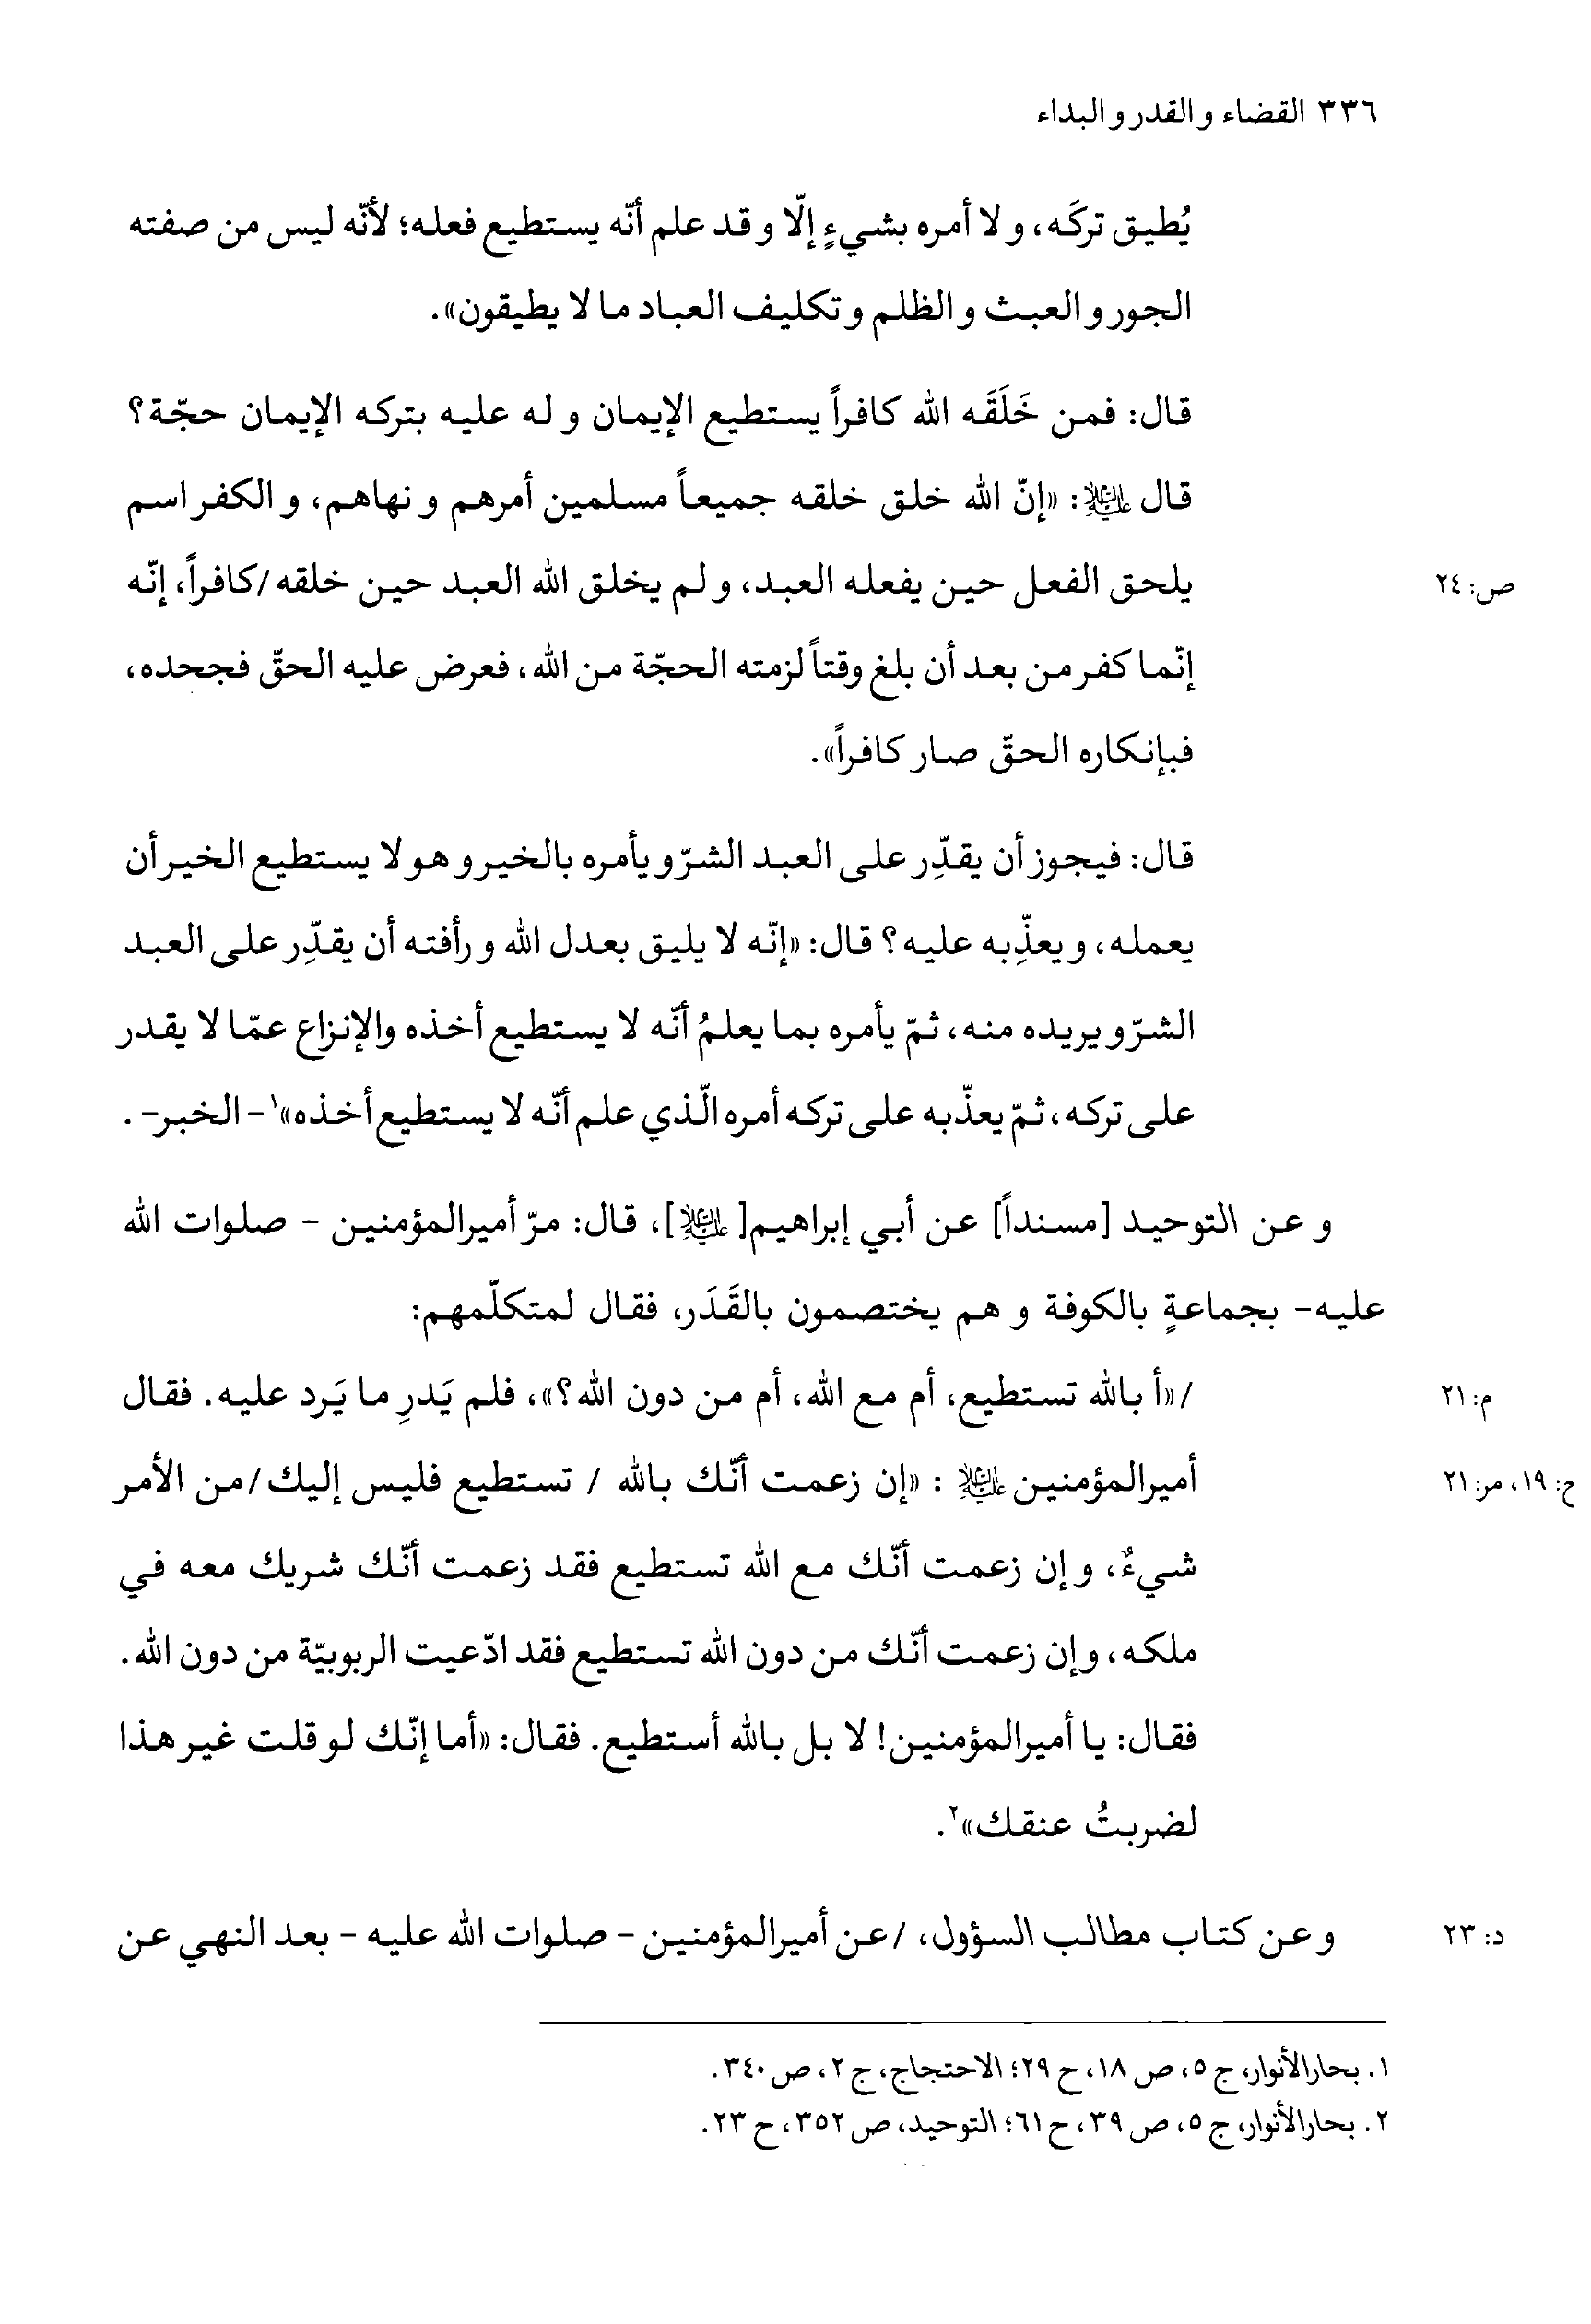 ٣٣٦ القضاء و القدر و البداء
يُطيق تركَه، و لا أمره بشيءٍ إلّا و قد علم أنّه يستطيع فعله؛ لأنّه ليس من صفته
الجور و العبث و الظلم و تكليف العباد ما لا يطيقون».
قال: فمن خَلَقَه الله كافراً يستطيع الإيمان و له عليه بتركه الإيمان حجّة؟
قال عليه السلام: «إنّ الله خلق خلقه جميعاً مسلمين أمرهم و نهاهم، و الكفر اسم
يلحق الفعل حين يفعله العبد، و لم يخلق الله العبد حين خلقه/كافراً، إنّه
ص: ٢٤
إنّما كفر من بعد أن بلغ وقتاً لزمته الحجّة من الله، فعرض عليه الحقّ فجحده،
فبإنكاره الحقّ صار كافراً».
قال: فيجوز أن يقدِّر على العبد الشرّ و يأمره بالخير و هو لا يستطيع الخير أن
يعمله، و يعذِّبه عليه؟ قال: «إنّه لا يليق بعدل الله و رأفته أن يقدِّر على العبد
الشرّ و يريده منه، ثمّ يأمره بما يعلمُ أنّه لا يستطيع أخذه والإنزاع عمّا لا يقدر
على تركه، ثمّ يعذّبه على تركه أمره الّذي علم أنّه لا يستطيع أخذه»١ - الخبر-.
و عن التوحيد [مسنداً] عن أبي إبراهيم[عليه السلام]، قال: مرّ أميرالمؤمنين - صلوات الله
عليه- بجماعةٍ بالكوفة و هم يختصمون بالقَدَر، فقال لمتكلّمهم:
/«أ بالله تستطيع، أم مع الله، أم من دون الله؟»، فلم يَدرِ ما يَرد عليه. فقال
م: ٢١
أميرالمؤمنين عليه السلام : «إن زعمت أنّك بالله / تستطيع فليس إليك/من الأمر
ح: ١٩، مر: ٢١
شيءٌ، و إن زعمت أنّك مع الله تستطيع فقد زعمت أنّك شريك معه في
ملكه، و إن زعمت أنّك من دون الله تستطيع فقد ادّعيت الربوبيّة من دون الله.
فقال: يا أميرالمؤمنين! لا بل بالله أستطيع. فقال: «أما إنّك لو قلت غير هذا
لضربتُ عنقك»٢.
و عن كتاب مطالب السؤول، /عن أميرالمؤمنين - صلوات الله عليه - بعد النهي عن
د: ٢٣
١. بحارالأنوار، ج ٥، ص ١٨، ح ٢٩؛ الاحتجاج، ج ٢، ص ٣٤٠.
٢. بحارالأنوار، ج ٥، ص ٣٩، ح ٦١؛ التوحيد، ص ٣٥٢، ح ٢٣.